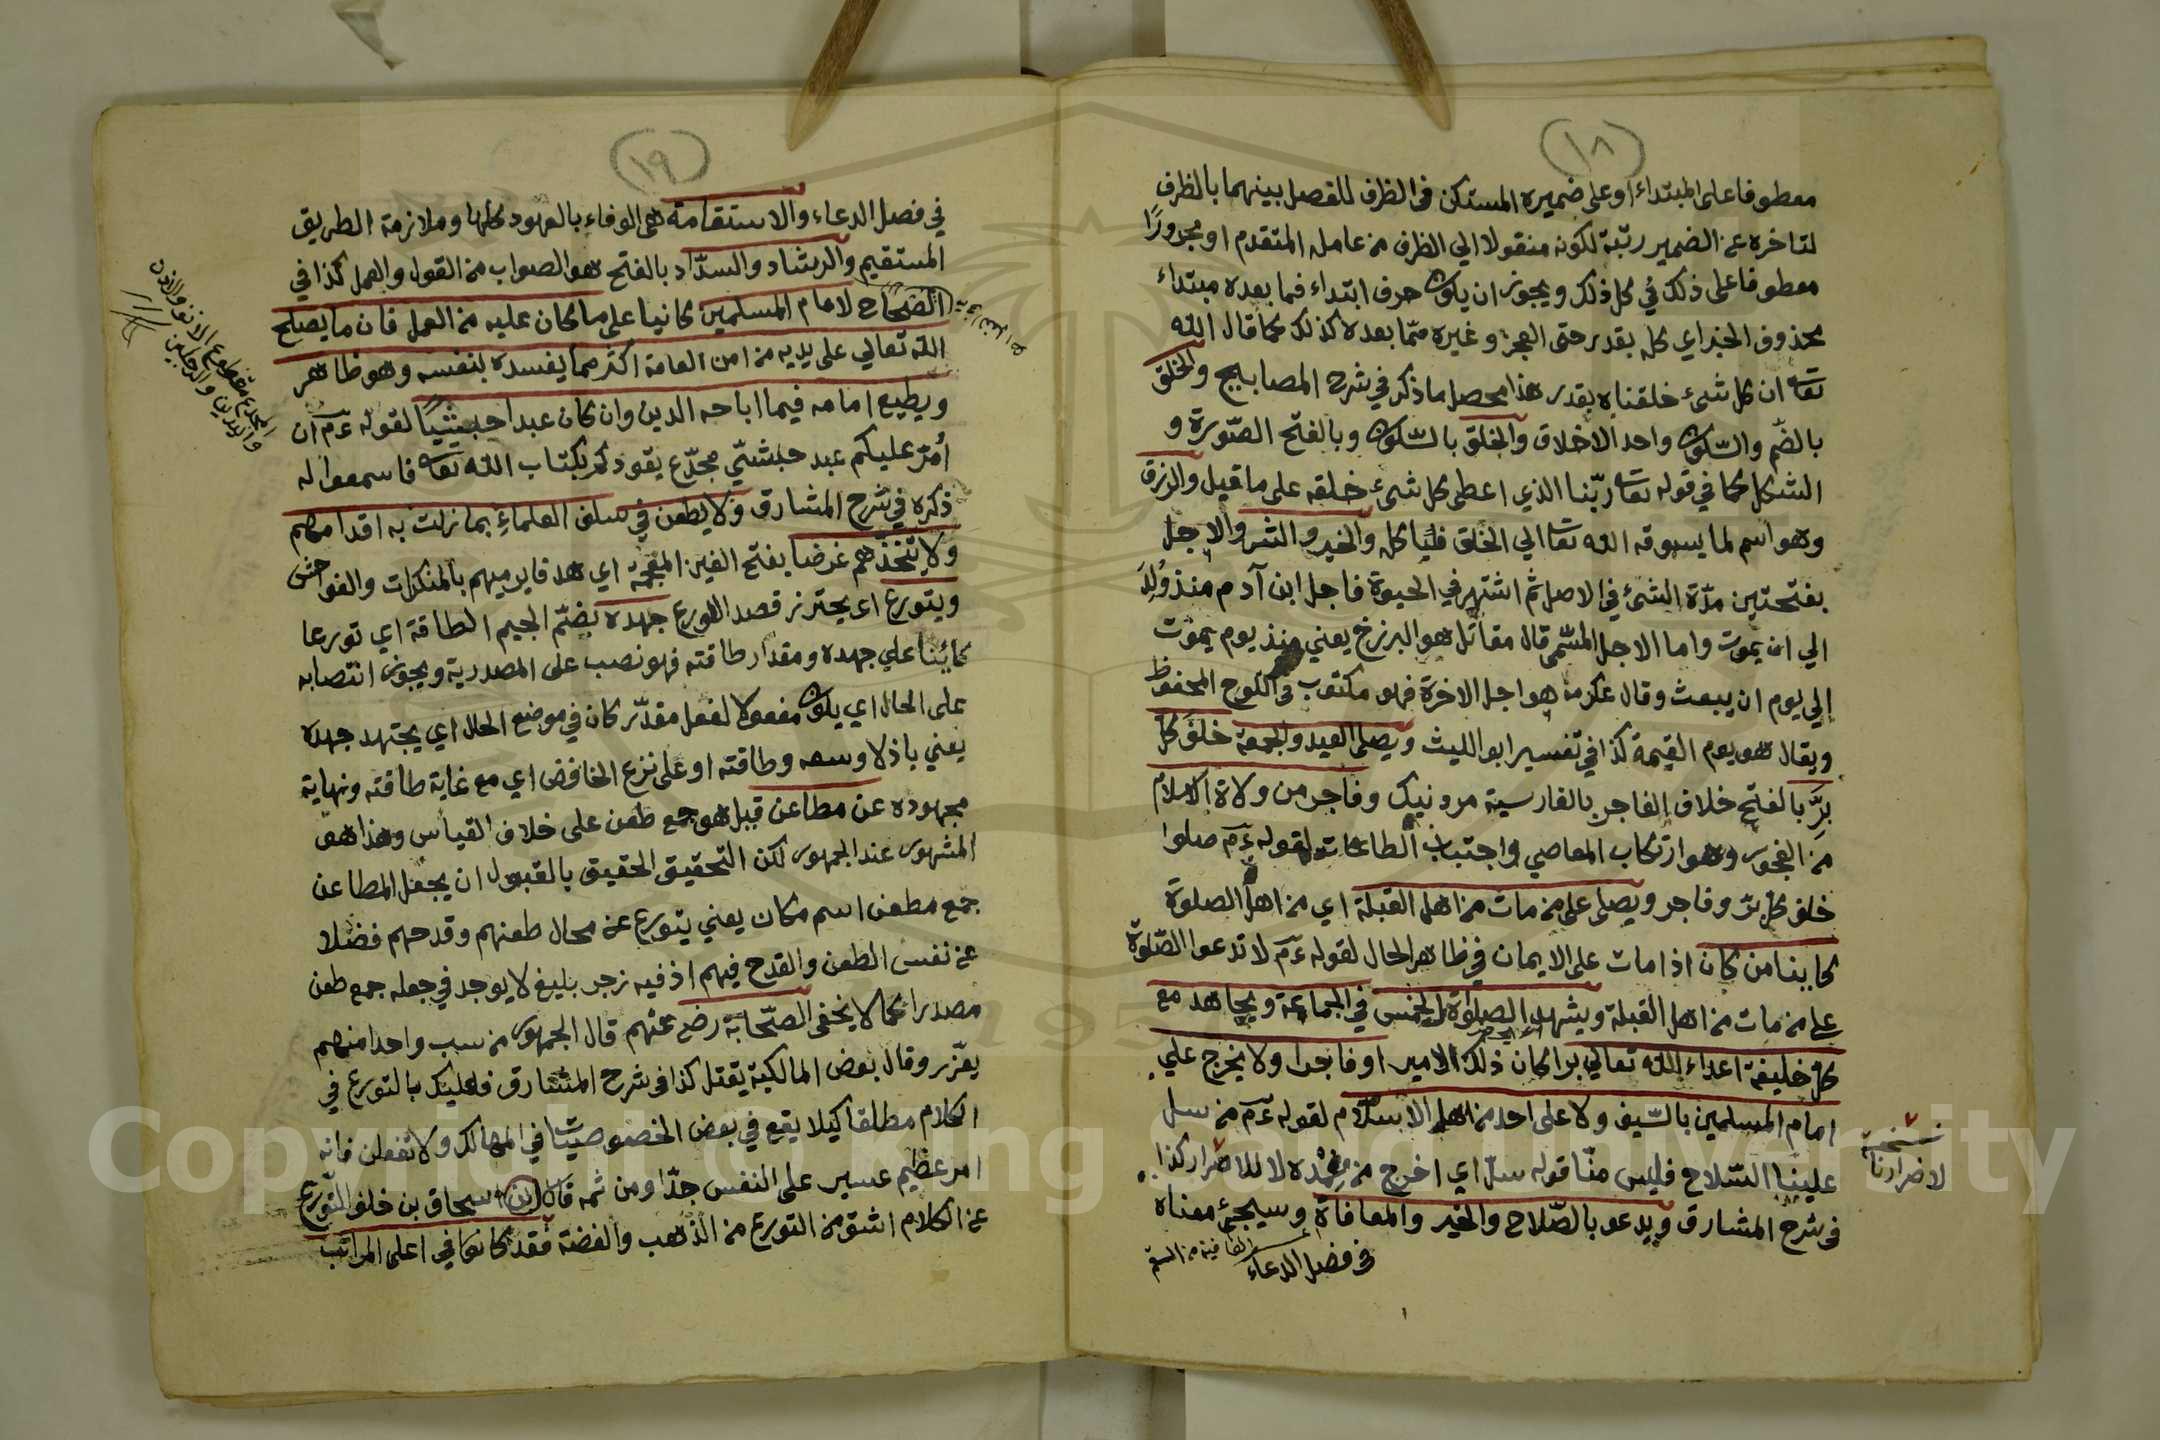 (١٨)
معطوفا على المبتداء او على ضميره المستكن في الظرف للفصل بينهما بالظرف
لتاخره عن الضمير رتبة لكونه منقولا الي الظرف من عامله المتقدم او مجرورًا
معطوفا على ذلك في كل ذلك ويجوز ان يكون حرف ابتداء فما بعده مبتداء
محذوف الخبر اي كله بقدر حتى العجز وغيره ممّا بعده كذلك كما قال الله
تعا ان كل شئ خلقناه بقدر هذا محصل ما ذكر في شرح المصابيح والخلق
بالضّم والسّكون واحد الاخلاق والخلق بالسّكون وبالفتح الصّورة و
الشكل كما في قوله تعا ربّنا الذي اعطى كل شئ خلقه على ما قيل والرزق
وهو اسم لما يسوقه الله تعا الي الخلق فيأكله والخير والشر والاجل
بفتحتين مدّة الشئ في الاصل ثم اشتهر في الحيوة فاجل ابن آدم منذ وُلِدَ
الي ان يموت واما الاجل المسّمى قال مقاتل هو البرزخ يعني منذ يوم يموت
الي يوم ان يبعث وقال عكرمة هو اجل الاخرة فهو مكتوب في اللوح المحفوظ
ويقال هو يوم القيمة كذا في تفسير ابو الليث ويصلي العيد والجمعة خلف كلّ
برَّ بالفتح خلاف الفاجر بالفارسية مرد نيك وفاجر من ولاة الاسلام
من الفجور وهو ارتكاب المعاصي واجتناب الطاعات لقوله ءم صلوا
خلف كل برّ وفاجر ويصلي على من مات من اهل القبلة اي من اهل الصلوة
كاينا من كان اذا مات على الايمان في ظاهر الحال لقوله ءم لا تدعوا الصّلوة
على من مات من اهل القبلة ويشهد الصلواة الخمس في الجماعة ويجاهد مع
كل خليفة اعداء الله تعالي برا كان ذلك الامير او فاجرا ولا يخرج علي
امام المسلمين بالسّيف ولا على احد من اهل الاسلام لقوله ءم من سل
علينا السّلاح فليس منّا قوله سلّ اي اخرج من غمده لاللاضرار كذا
في شرح المشارق ويدعو بالصّلاح والخير والمعافاة وسيجئ معناه
في فضل الدعاء
نسخة
لاضرارنا
(١٩)
في فصل الدعاء والاستقامة هي الوفاء بالعهود كلها وملازمة الطريق
المستقيم والرشاد والسدّاد بالفتح هو الصواب من القول والعمل كذا في
الصّحاح لامام المسلمين كانيا على ما كان عليه من العمل فان ما يصلح
الله تعالي على يديه من امن العامة اكثر مما يفسده بنفسه وهو ظاهر
ويطيع امامه فيما اباحه الدين وان كان عبدا حبشيًا لقوله ءم ان
اُمّر عليكم عبد حبشيّ مجدّع يقودكم بكتاب الله تعا فاسمعوا له
ذكره في شرح المشارق ولا يطعن في سلف العلماء بما زلت به اقدامهم
ولا يتّخذهم غرضا بفتح الغين المعجمة اي هدفا يرميهم بالمنكرات والفواحش
ويتورع اي يحترز قصد الورع جهده بضّم الجيم الطاقة اي تورعا
كائنا علي جهده ومقدار طاقته فهو نصب على المصدرية ويجوز انتصابه
على الحال اي يكون مفعولا لفعل مقدّر كان في موضع الحال اي يجتهد جهده
يعني باذلا وسعه وطاقته او على نزع الخافض اي مع غاية طاقته ونهاية
مجهوده عن مطاعن قيل هو جمع طعن على خلاف القياس وهذا هو
المشهور عند الجمهور لكن التحقيق الحقيق بالقبول ان يجعل المطاعن
جمع مطعن اسم مكان يعني يتورع عن محال طعنهم وقدحهم فضلا
عن نفس الطعن والقدح فيهم اذ فيه زجر بليغ لا يوجد في جعله جمع طعن
مصدرا كما لا يخفى الصّحابة رضع عنهم قال الجمهور من سب واحدا منهم
يعزّر وقال بعض المالكية يقتل كذا في شرح المشارق فعليك بالتورع في
الكلام مطلقا كيلا يقع في بعض الخصوصيات في المهالك ولا تغفلن فانه
امر عظيم عسير على النفس جدّا ومن ثمه قال ابن اسحاق بن خلف التّورع
عن الكلام اشق من التورع من الذهب والفضة فقد كانوا في اعلى المراتب
المجدع مقطوع الانف والاذن
واليدين والرجلين